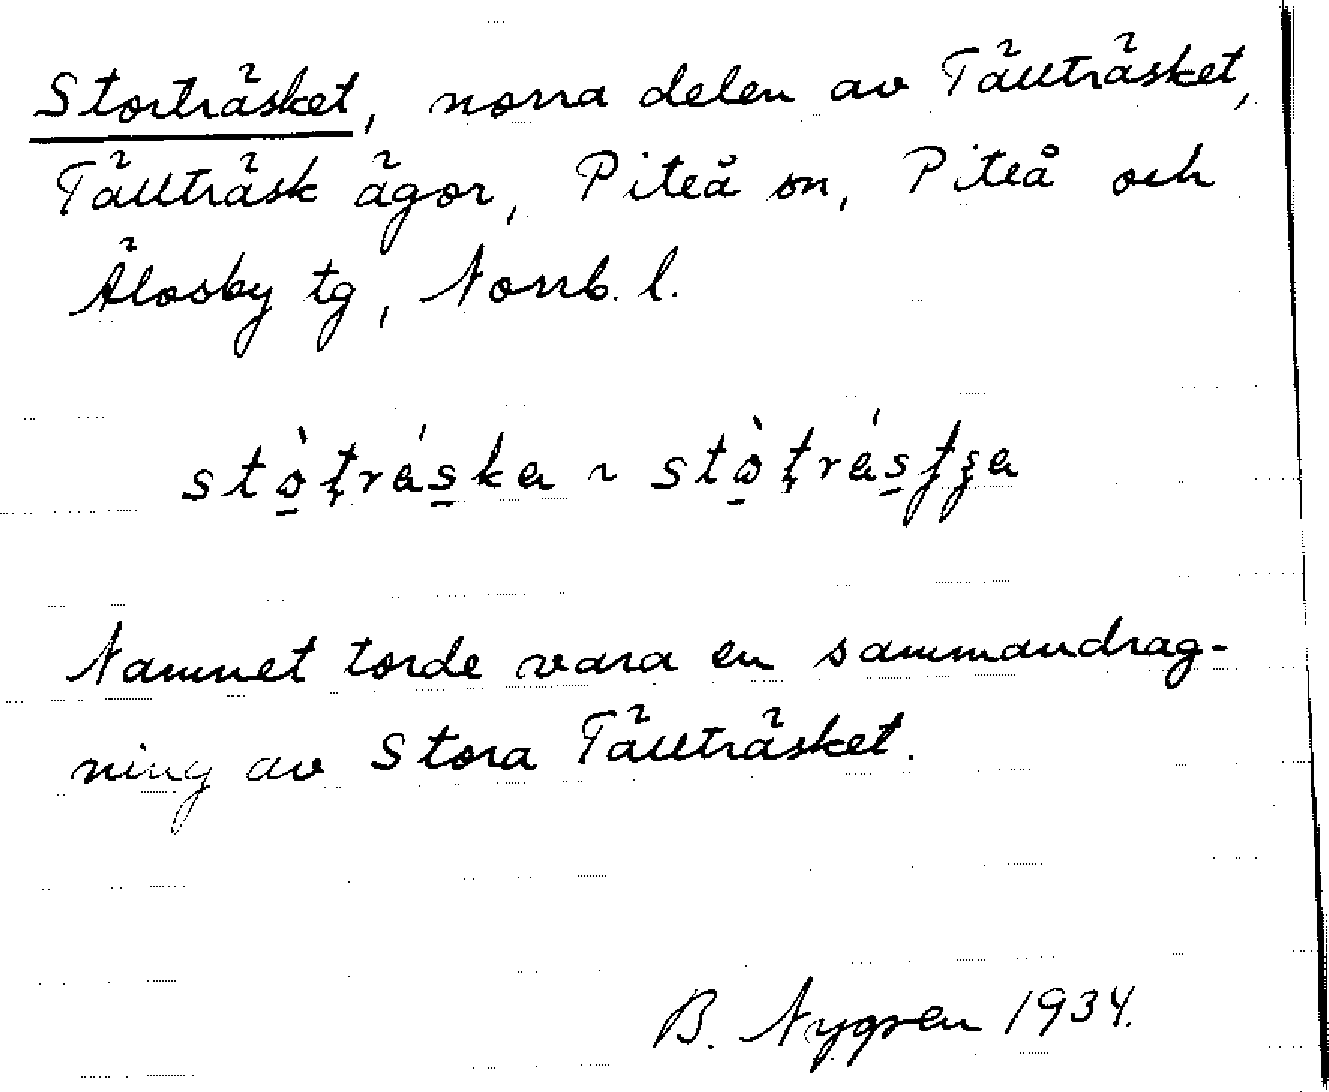 Storträsket, norra delen av Tällträsket,
Tällträsk ägor, Piteå sn, Piteå och
Älvsby tg, Norrb. l.
Namnet torde vara en sammandrag-
ning av Stora Tällträsket.
B. Nygren 1934.